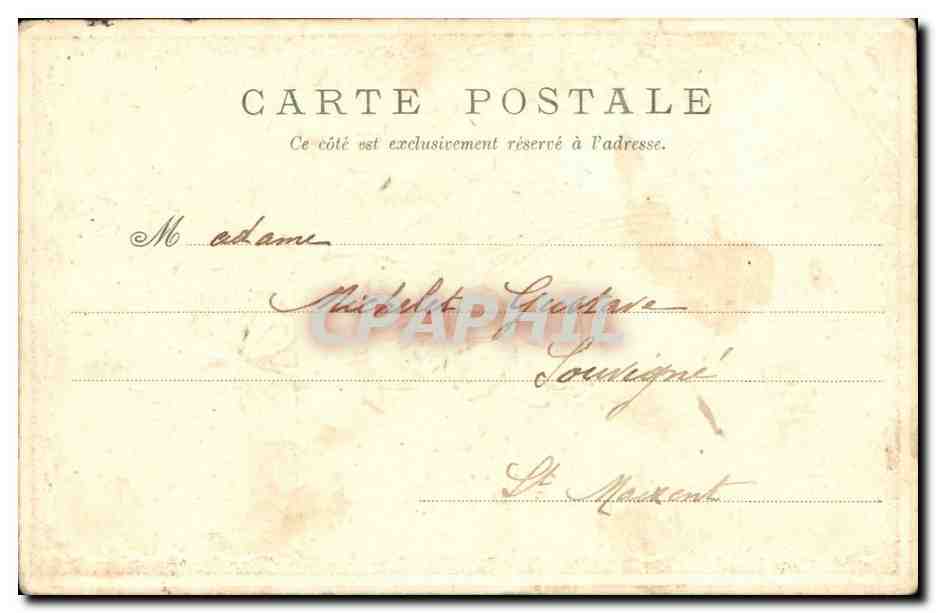 CARTE POSTALE
Ce côté est exclusivement réservé à l'adresse.
Madame
Michelet Gustave
CPAPHIL
Souvigné
St Maixent